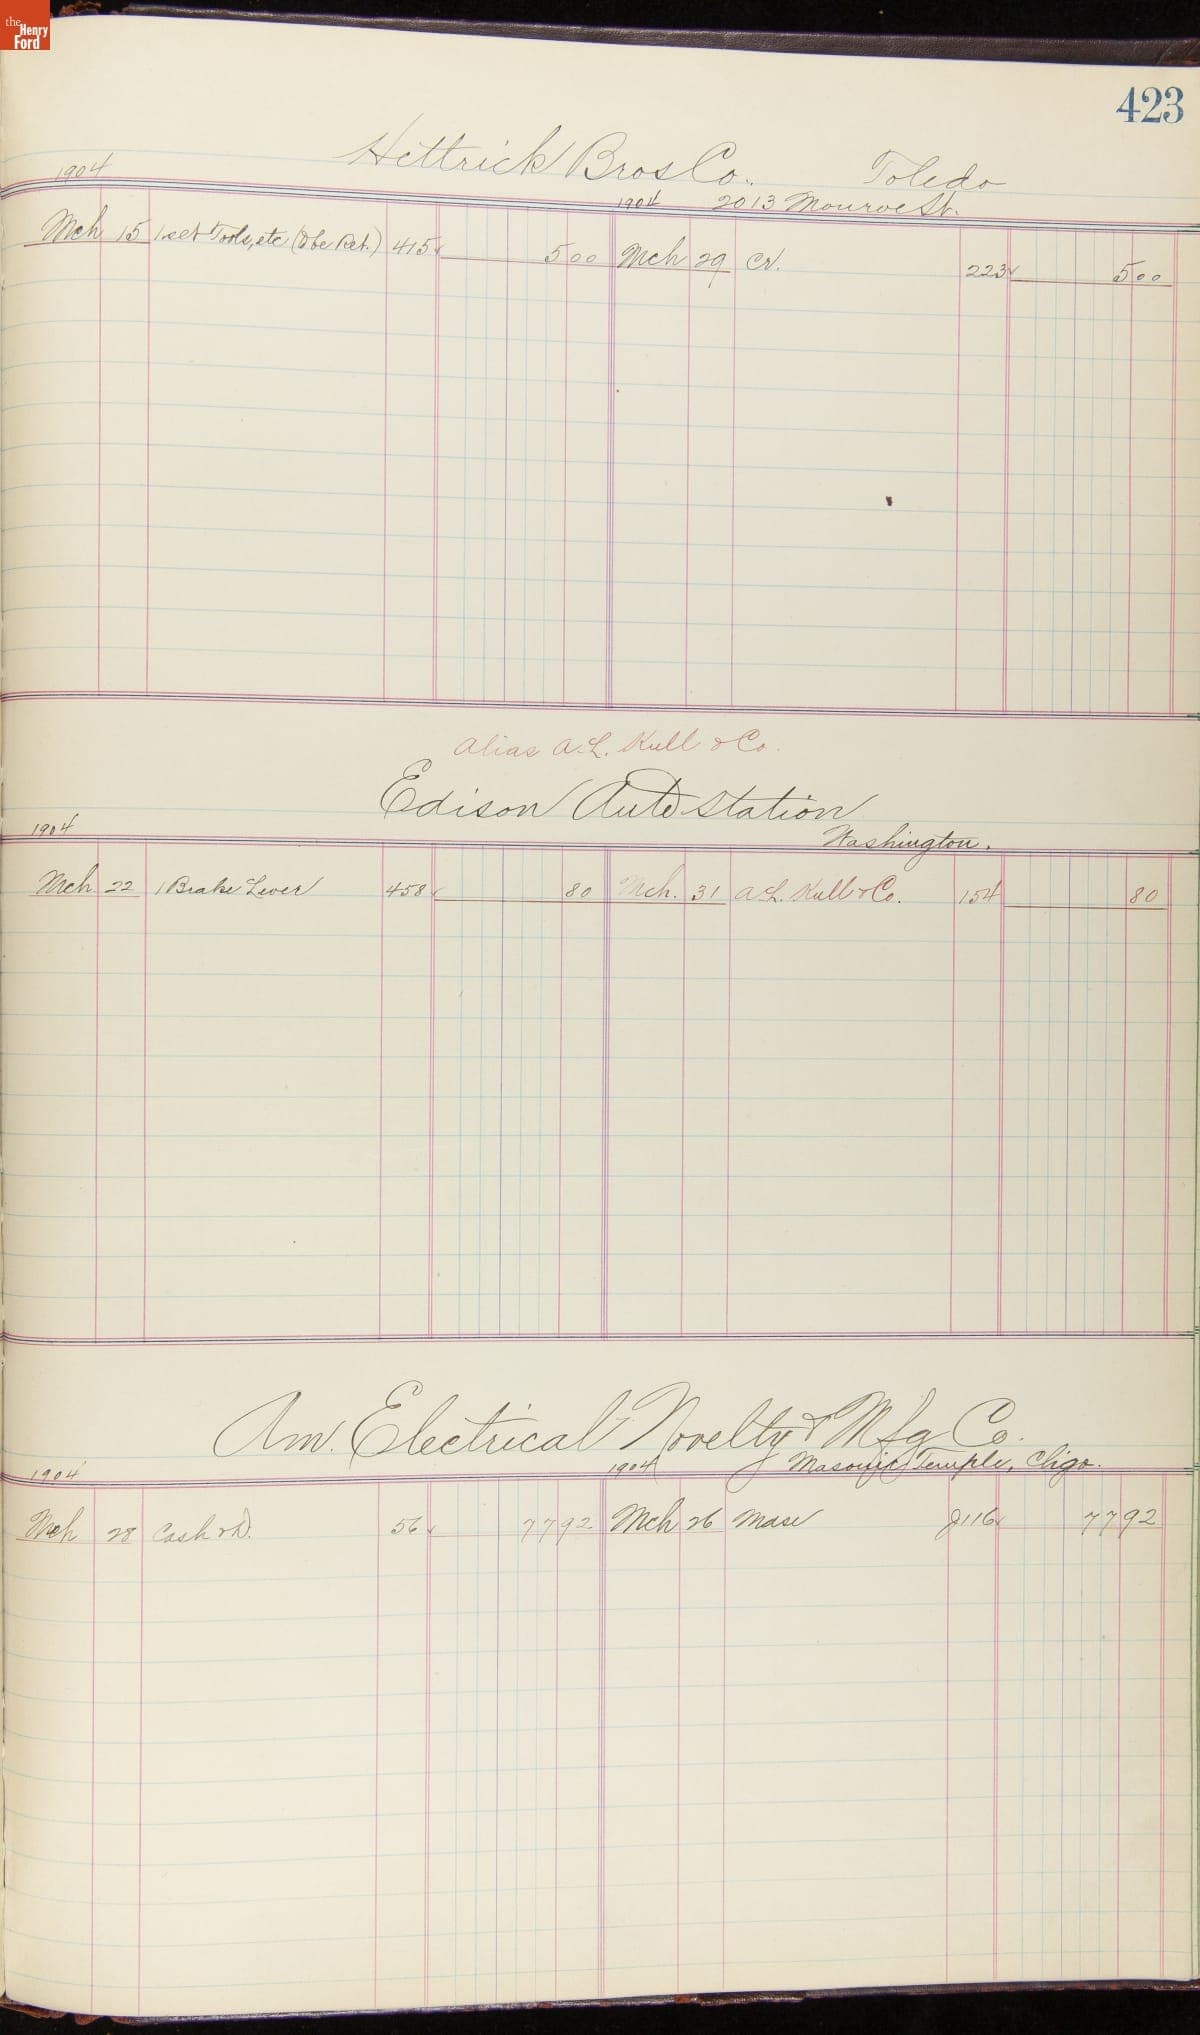 the Henry Ford
423
Hettrick Bros Co. Toledo
1904 1904 2013 Monroe St.
Mch 15 1 set Tools, etc (To be Ret.) 415 ✓ 5 00 Mch 29 Cr. 223 ✓ 5 00
Alias A.L. Kull & Co.
Edison Auto Station
1904 Washington.
Mch 22 1 Brake Lever 458 ✓ 80 Mch. 31 A.L. Kull & Co. 154 80
Am. Electrical Novelty & Mfg Co.
1904 1904 Masonic Temple, Chgo.
Mch 28 Cash & D. 56 ✓ 77 92 Mch 26 Mdse J116 ✓ 77 92